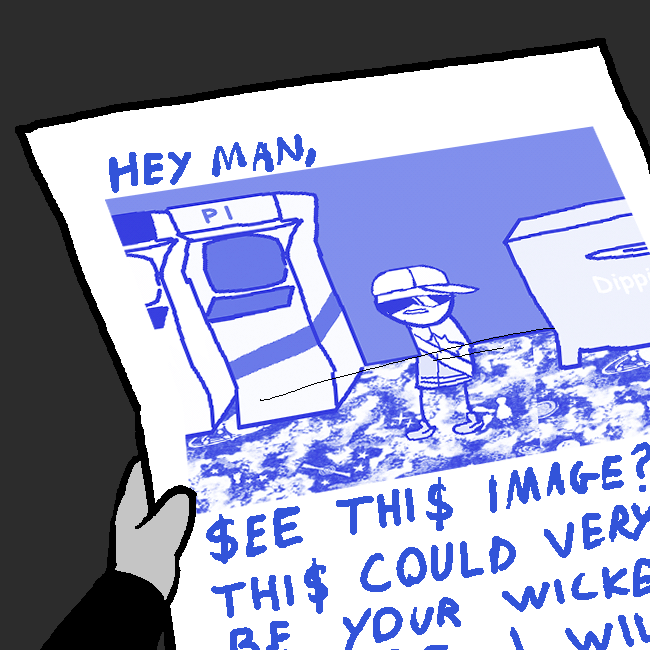 HEY MAN,
PI
Dippi
$EE THI$ IMAGE?
THI$ COULD VERY
BE YOUR WICKE
I WIL